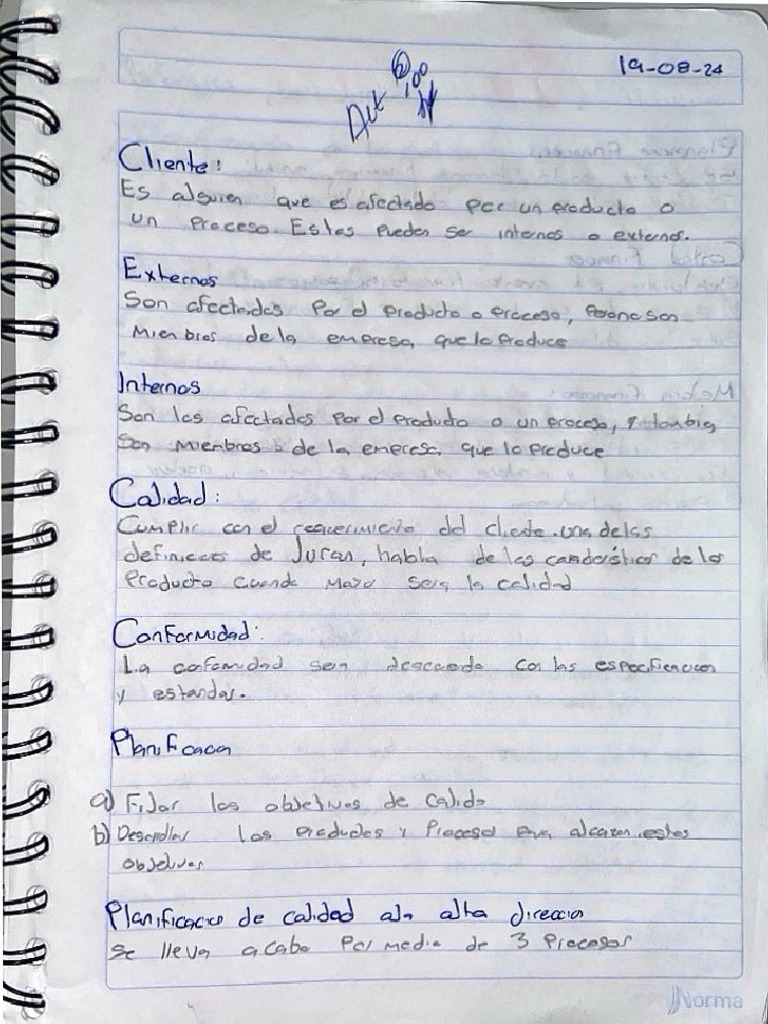 19-08-24
Act
Cliente:
Es alguien que es afectado por un producto o
un Proceso. Estos pueden ser internos o externos.
Externos
Son afectados Por el producto o proceso, Pero no son
Miembros de la empresa, que lo Produce
Internos
Son los afectados Por el producto o un proceso, y tambien
Son Miembros de la empresa. que lo produce
Calidad:
Cumplir con el requerimiento del cliente. una de las
de Juran, habla de las de los
Producto cuando sera la calidad
Conformidad:
La con las
y estandar.
Planificacion
a) Fijar los objetivos de calida
b) los productos y Proceso alcanzar estos
Planificacio de calidad a la alta direccion
Se lleva acabo Por medio de 3 Procesos
Norma